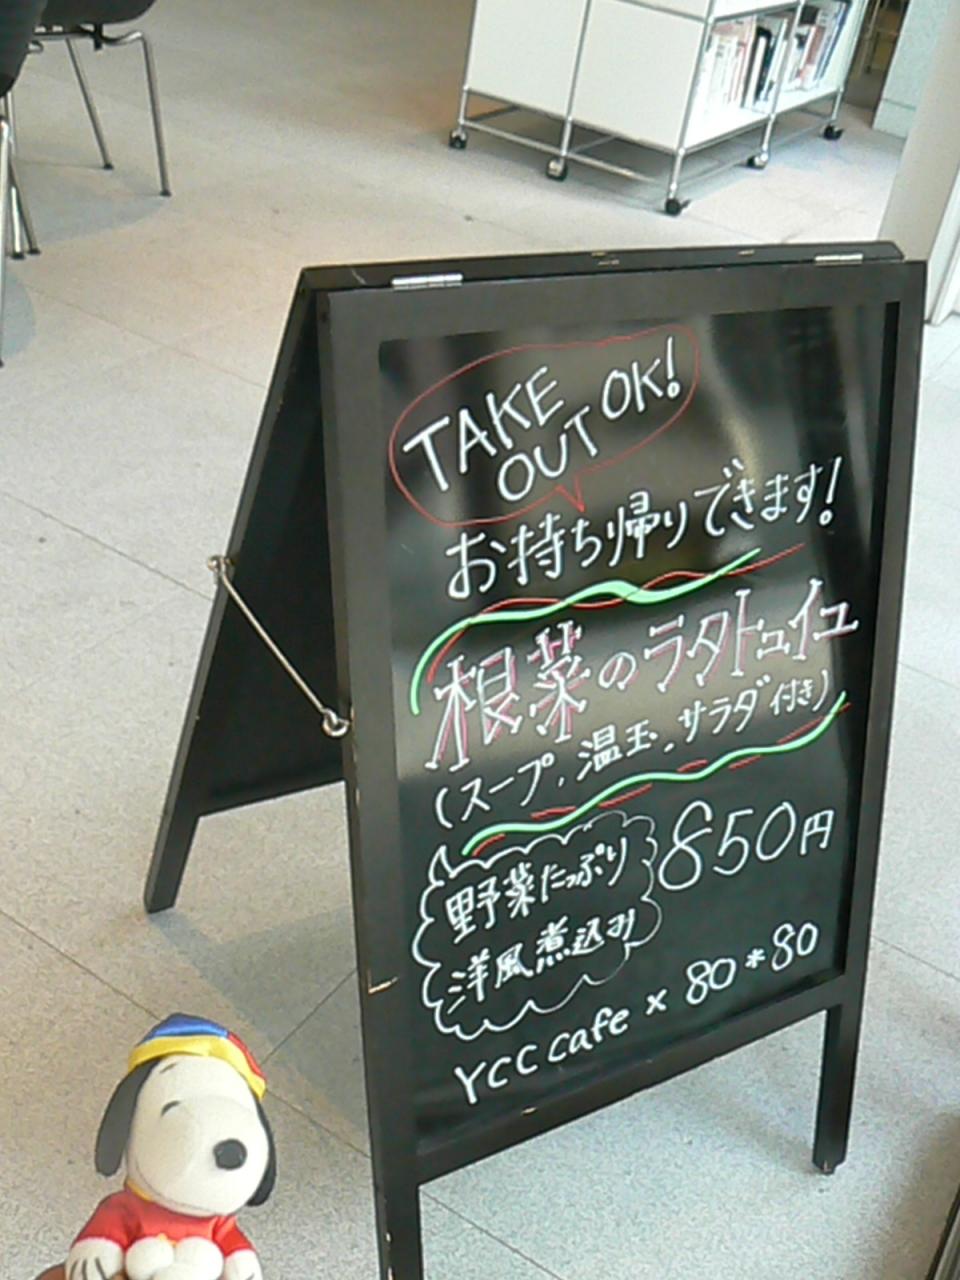 TAKE OUT OK!
お持ち帰りできます!
根菜のラタトュイユ
(スープ,温玉,サラダ付き)
850円
野菜たっぷり
洋風煮込み
YCC cafe × 80*80